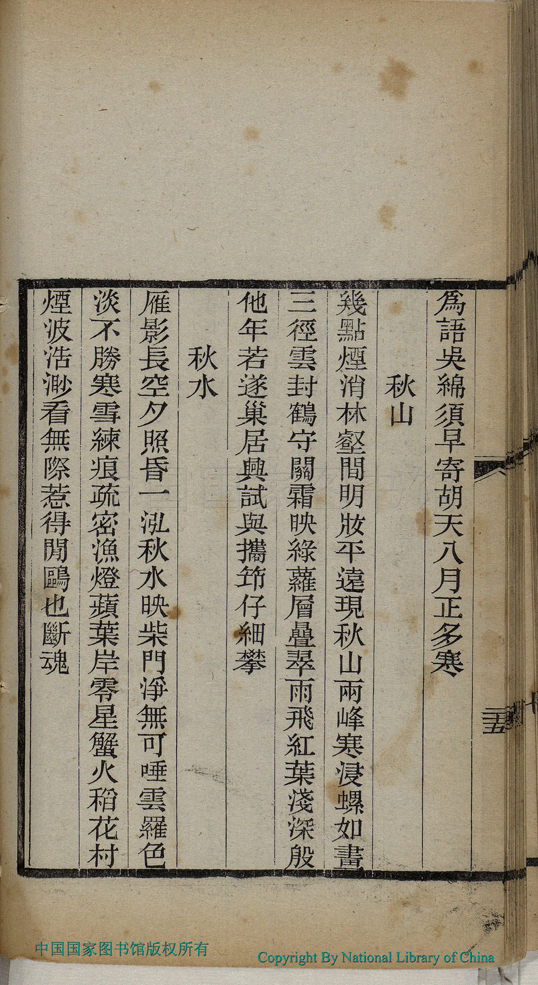 爲語吳綿須早寄胡天八月正多寒
秋山
幾點煙消林壑間明妝平遠現秋山兩峰寒浸螺如畫
三徑雲封鶴守關霜映綠蘿層疊翠雨飛紅葉淺深殷
他年若遂巢居興試與攜筇仔細攀
秋水
雁影長空夕照昏一泓秋水映柴門淨無可唾雲羅色
淡不勝寒雪練痕疏密漁燈蘋葉岸零星蟹火稻花村
煙波浩渺看無際惹得閒鷗也斷魂
二五
中国国家图书馆版权所有
Copyright By National Library of China